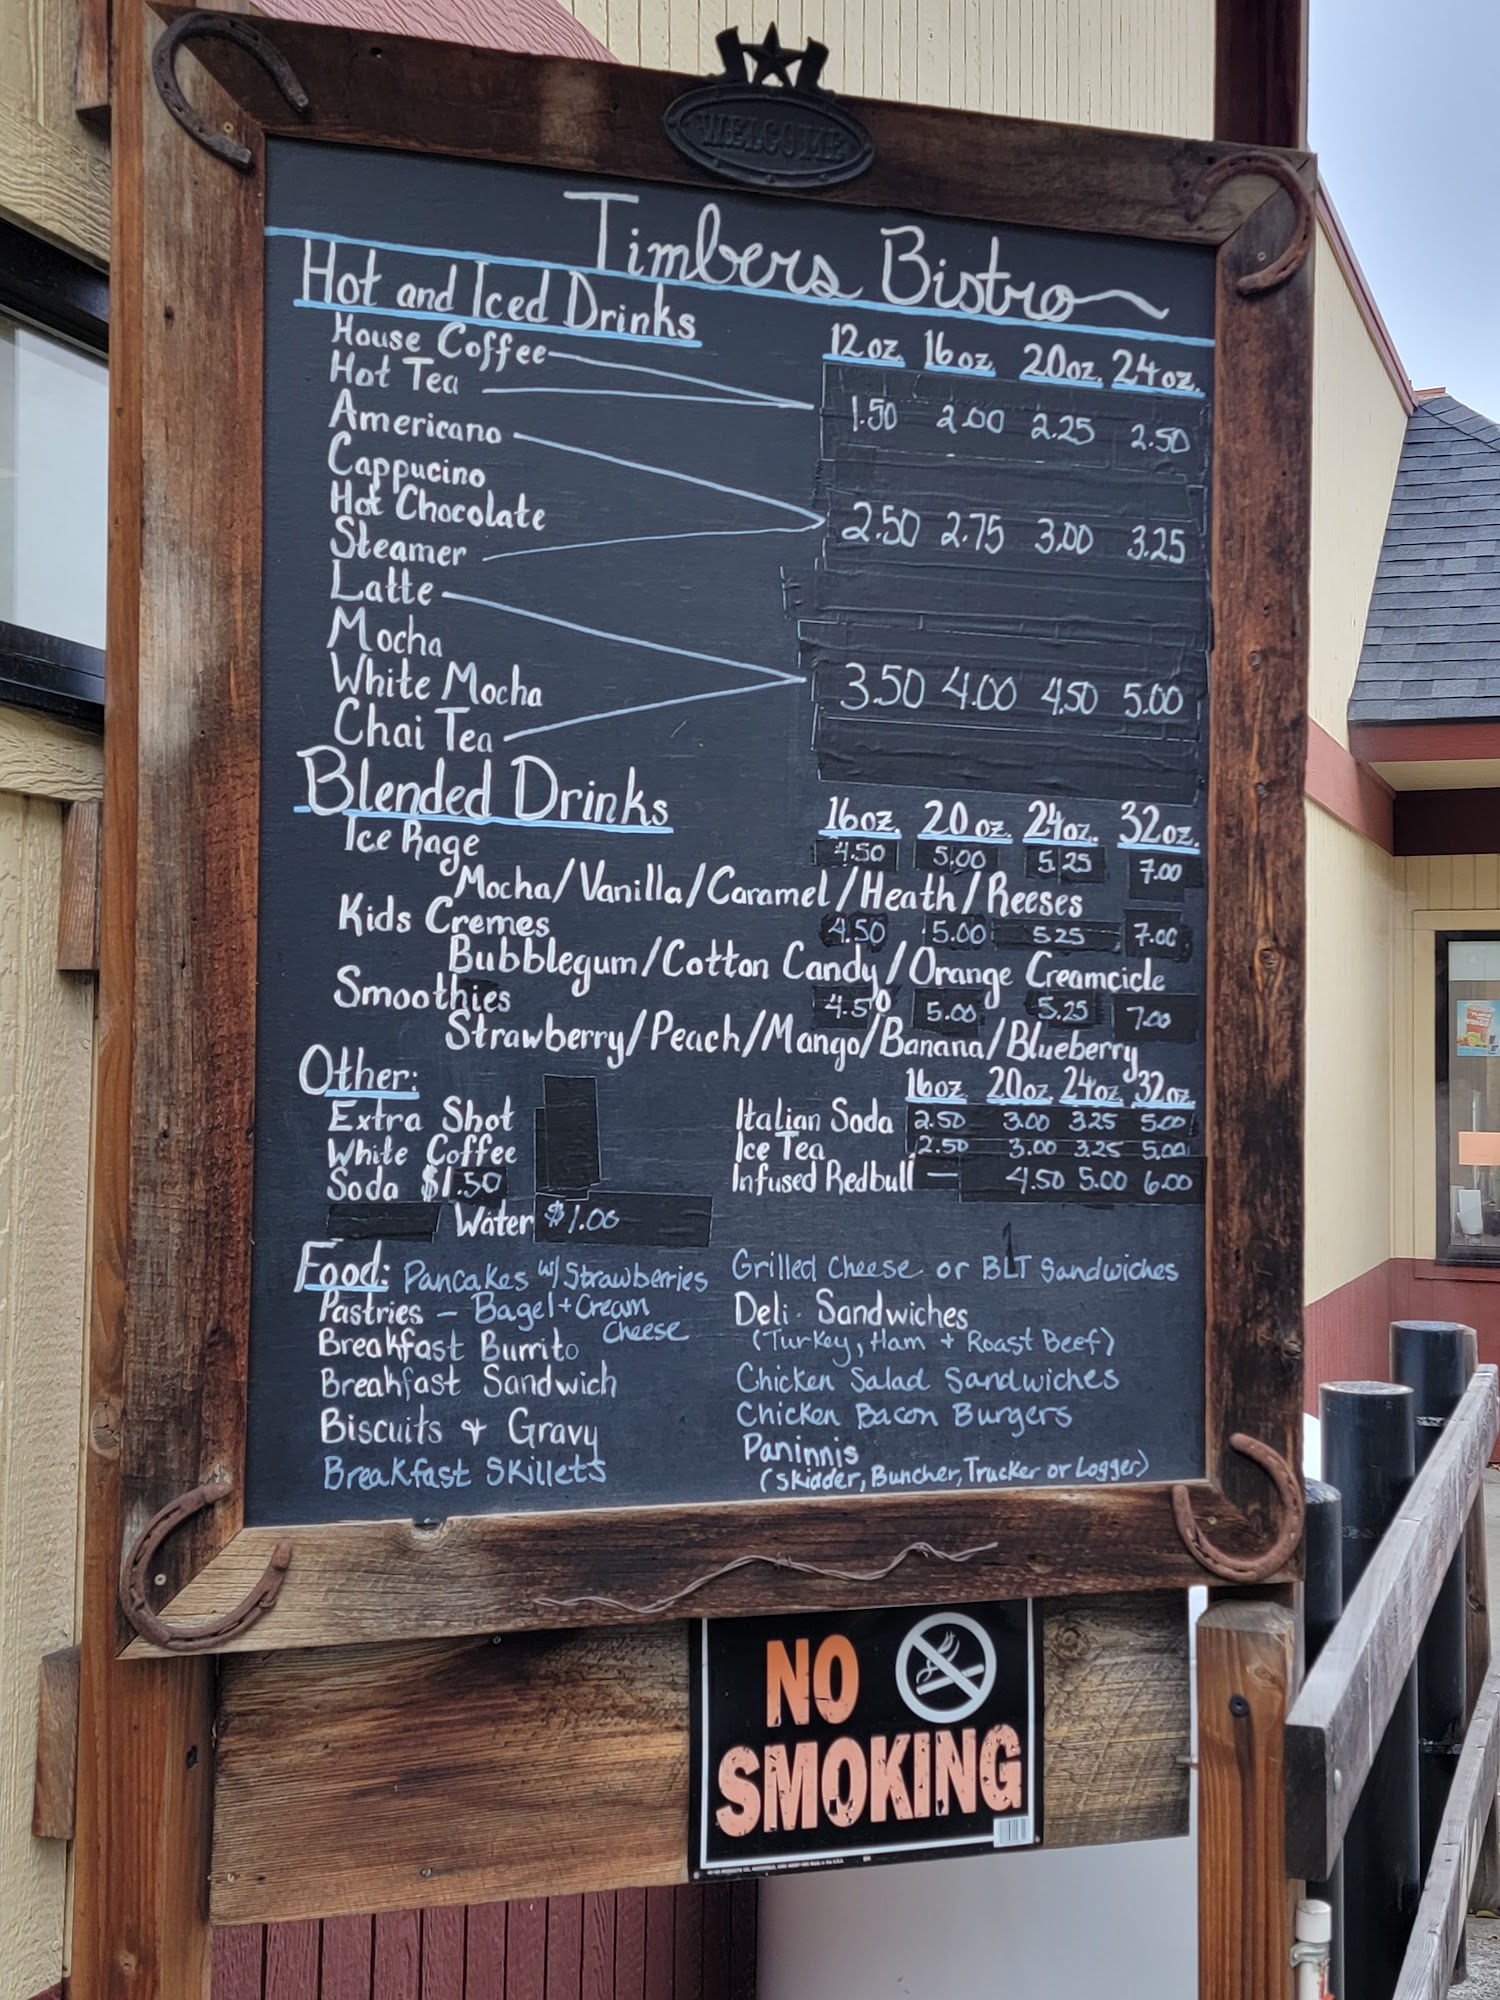 WELCOME
Timbers Bistro
Hot and Iced Drinks 12oz. 16oz. 20oz. 24oz.
House Coffee
Hot Tea 1.50 2.00 2.25 2.50
Americano
Cappucino
Hot Chocolate 2.50 2.75 3.00 3.25
Steamer
Latte
Mocha
White Mocha 3.50 4.00 4.50 5.00
Chai Tea
Blended Drinks 16oz. 20oz. 24oz. 32oz.
Ice Rage 4.50 5.00 5.25 7.00
Mocha/Vanilla/Caramel/Heath/Reeses
Kids Cremes 4.50 5.00 5.25 7.00
Bubblegum/Cotton Candy/Orange Creamcicle
Smoothies 4.50 5.00 5.25 7.00
Strawberry/Peach/Mango/Banana/Blueberry
Other: 16oz 20oz 24oz 32oz
Extra Shot Italian Soda 2.50 3.00 3.25 5.00
White Coffee Ice Tea 2.50 3.00 3.25 5.00
Soda $1.50 Infused Redbull — 4.50 5.00 6.00
Water $1.00
Food: Pancakes w/ Strawberries
Pastries - Bagel + Cream
Cheese
Breakfast Burrito
Breakfast Sandwich
Biscuits & Gravy
Breakfast Skillets
Grilled Cheese or BLT Sandwiches
Deli Sandwiches
(Turkey, Ham + Roast Beef)
Chicken Salad Sandwiches
Chicken Bacon Burgers
Paninnis
(Skidder, Buncher, Trucker or Logger)
NO
SMOKING